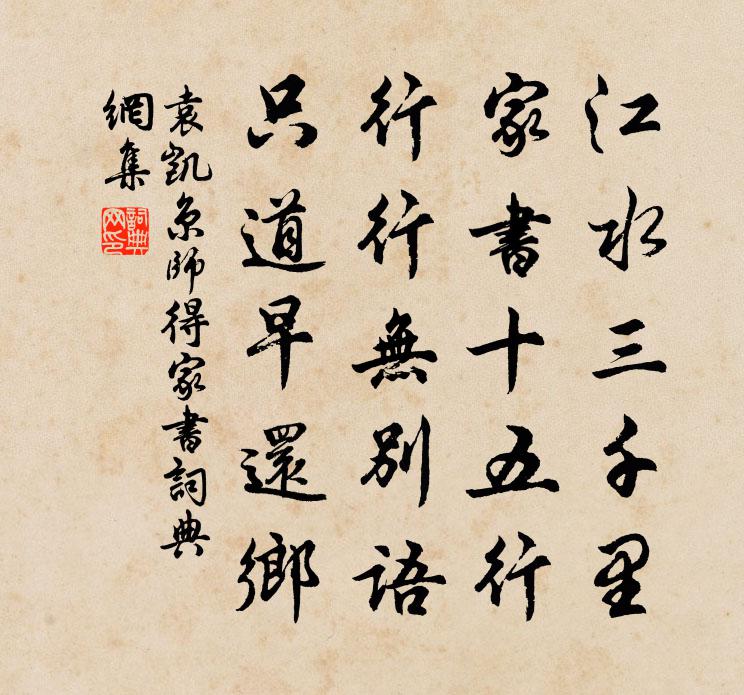 江水三千里
家書十五行
行行無別語
只道早還鄉
袁凱京師得家書詞典
網集
詞典網印